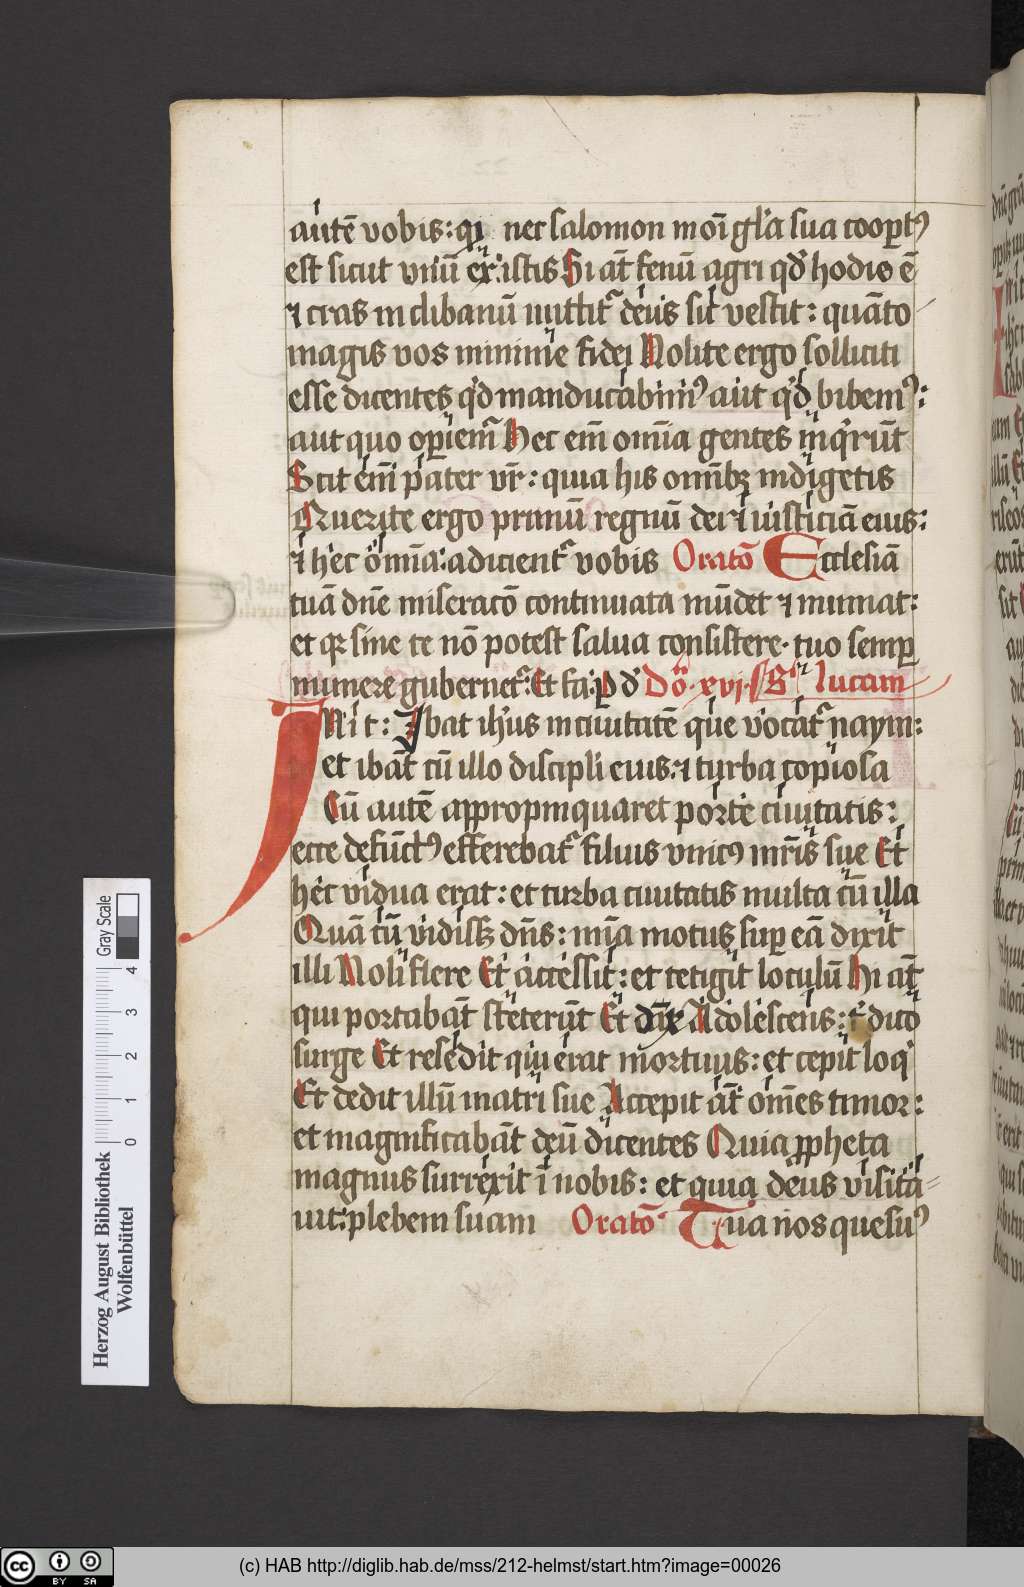 autē vobis: qꝛ nec salomon in oī gl'a sua coop̄tꝰ
est sicut vnū ex istis Si at̄ fenū agri qd' hodie ē
⁊ cras in clibanū mittit᷑ deus sic vestit: quāto
magis vos minime fidei Nolite ergo solliciti
esse dicentes qd' manducabimꝰ aut qd' bibemꝰ:
aut quo operiem᷑ Hec em̄ omīa gentes inq'rūt
Scit em̄ pater vr̄: quia his omībꝫ indigetis
Querite ergo primū regnū dei ⁊ iusticiā eius:
⁊ hec omīa: adicient᷑ vobis Oratō Ecclesiā
tuā dn̄e miseracō continuata mūdet ⁊ muniat:
et qꝛ sine te nō potest salua consistere. tuo semp̄
munere gubernet᷑: Et fa: p d' Dō. xvi. S. lucam
IN i t: Ibat ih'us in ciuitatē que vocat᷑ naym:
et ibāt cū illo discipli eius: ⁊ turba copiosa
Cū autē appropinquaret porte ciuitatis:
ecce defūctꝰ efferebat᷑ filius vnicꝰ mr̄is sue Et
hec vidua erat: et turba ciuitatis multa cū illa
Quā cū vidissꝫ dn̄s: mīa motus sup̄ eā dixit
illi Noli flere Et accessit: et tetigit loculū Hi at̄
qui portabāt steterūt Et dix̄ Adolescens: t' dico
surge Et resedit qui erat mortuus: et cepit loq'
Et dedit illū matri sue Accepit at̄ om̄es timor:
et magnificabāt deū dicentes Quia ꝓpheta
magnus surrexit ī nobis: et quia deus visita=
uit: plebem suam Oratō Tua nos quesuꝰ
Herzog August Bibliothek
Wolfenbüttel
Gray Scale
0 1 2 3 4
cc BY SA
(c) HAB http://diglib.hab.de/mss/212-helmst/start.htm?image=00026